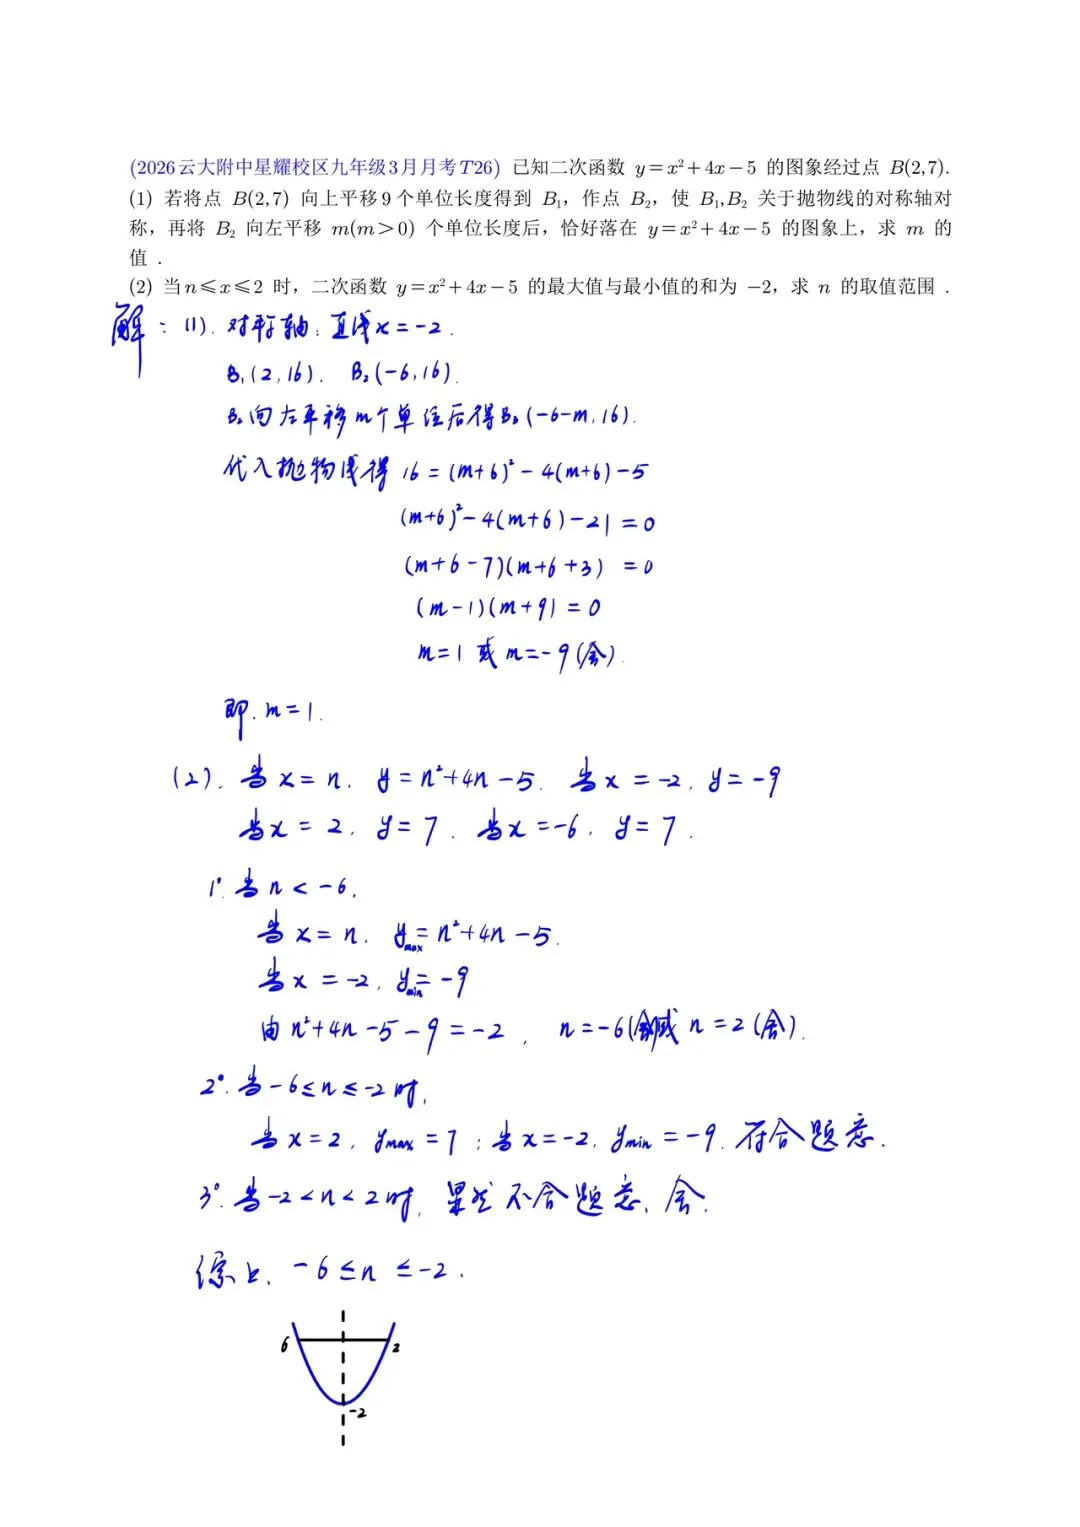 (2026云大附中星耀校区九年级3月月考T26) 已知二次函数 y=x²+4x-5 的图象经过点 B(2,7).
(1) 若将点 B(2,7) 向上平移9个单位长度得到 B₁, 作点 B₂, 使 B₁,B₂ 关于抛物线的对称轴对
称, 再将 B₂ 向左平移 m(m>0) 个单位长度后, 恰好落在 y=x²+4x-5 的图象上, 求 m 的
值 .
(2) 当n⩽x⩽2 时, 二次函数 y=x²+4x-5 的最大值与最小值的和为 -2, 求 n 的取值范围 .
解: (1). 对称轴: 直线x=-2.
B₁(2,16). B₂(-6,16).
B₂向左平移m个单位后得B₃(-6-m,16).
代入抛物线得 16=(m+6)²-4(m+6)-5
(m+6)²-4(m+6)-21=0
(m+6-7)(m+6+3)=0
(m-1)(m+9)=0
m=1 或 m=-9(舍).
即. m=1.
(2). 当x=n. y=n²+4n-5. 当x=-2, y=-9
当x=2, y=7. 当x=-6, y=7.
1°. 当n<-6,
当x=n. y_max=n²+4n-5.
当x=-2, y_min=-9
由n²+4n-5-9=-2, n=-6(舍)或 n=2(舍).
2°. 当-6≤n≤-2时,
当x=2, y_max=7; 当x=-2, y_min=-9. 符合题意.
3°. 当-2<n<2时, 显然不合题意、舍.
综上, -6≤n≤-2.
6 2
-2